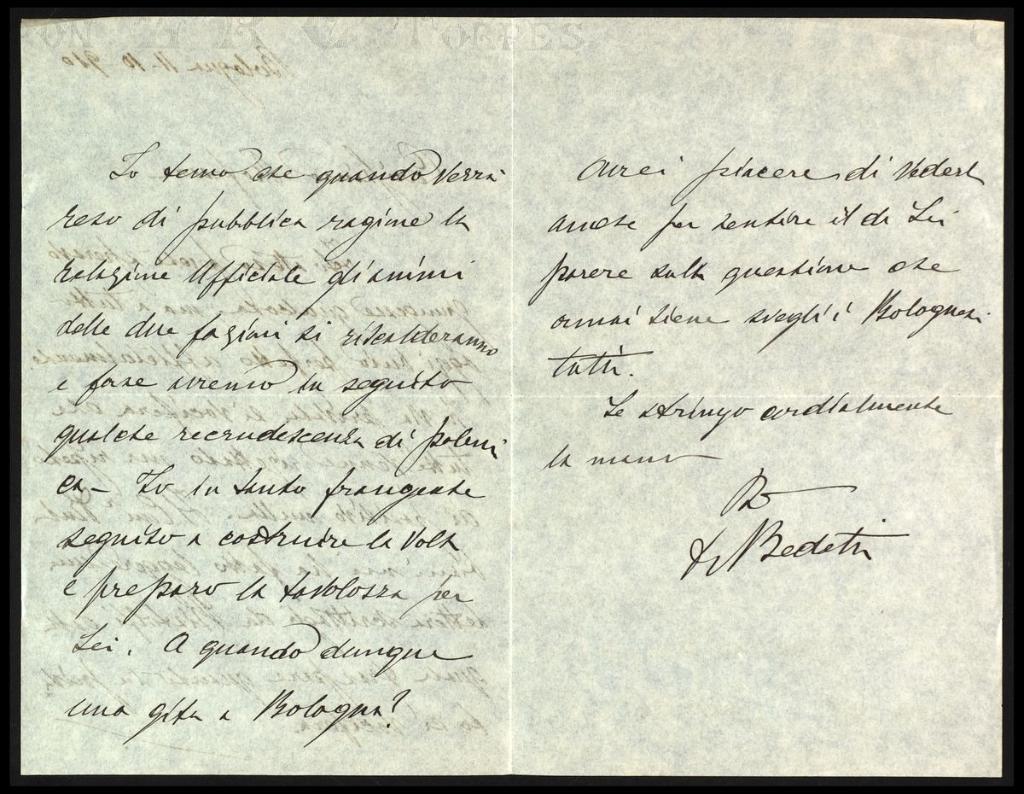 Io temo che quando verrà
reso di pubblica ragione la
relazione Ufficiale gli animi
delle due fazioni si riscalderanno
e forse avremo in seguito
qualche recrudescenza di polemi
ca – Io in tanto frangente
seguito a costruire la volta
e preparo la tavolozza per
Lei. A quando dunque
una gita a Bologna?
Avrei piacere di vederl
anche per sentire il di Lei
parere sulla questione che
ormai tiene svegli i Bolognesi
tutti.
Le stringo cordialmente
la mano
Bedetti